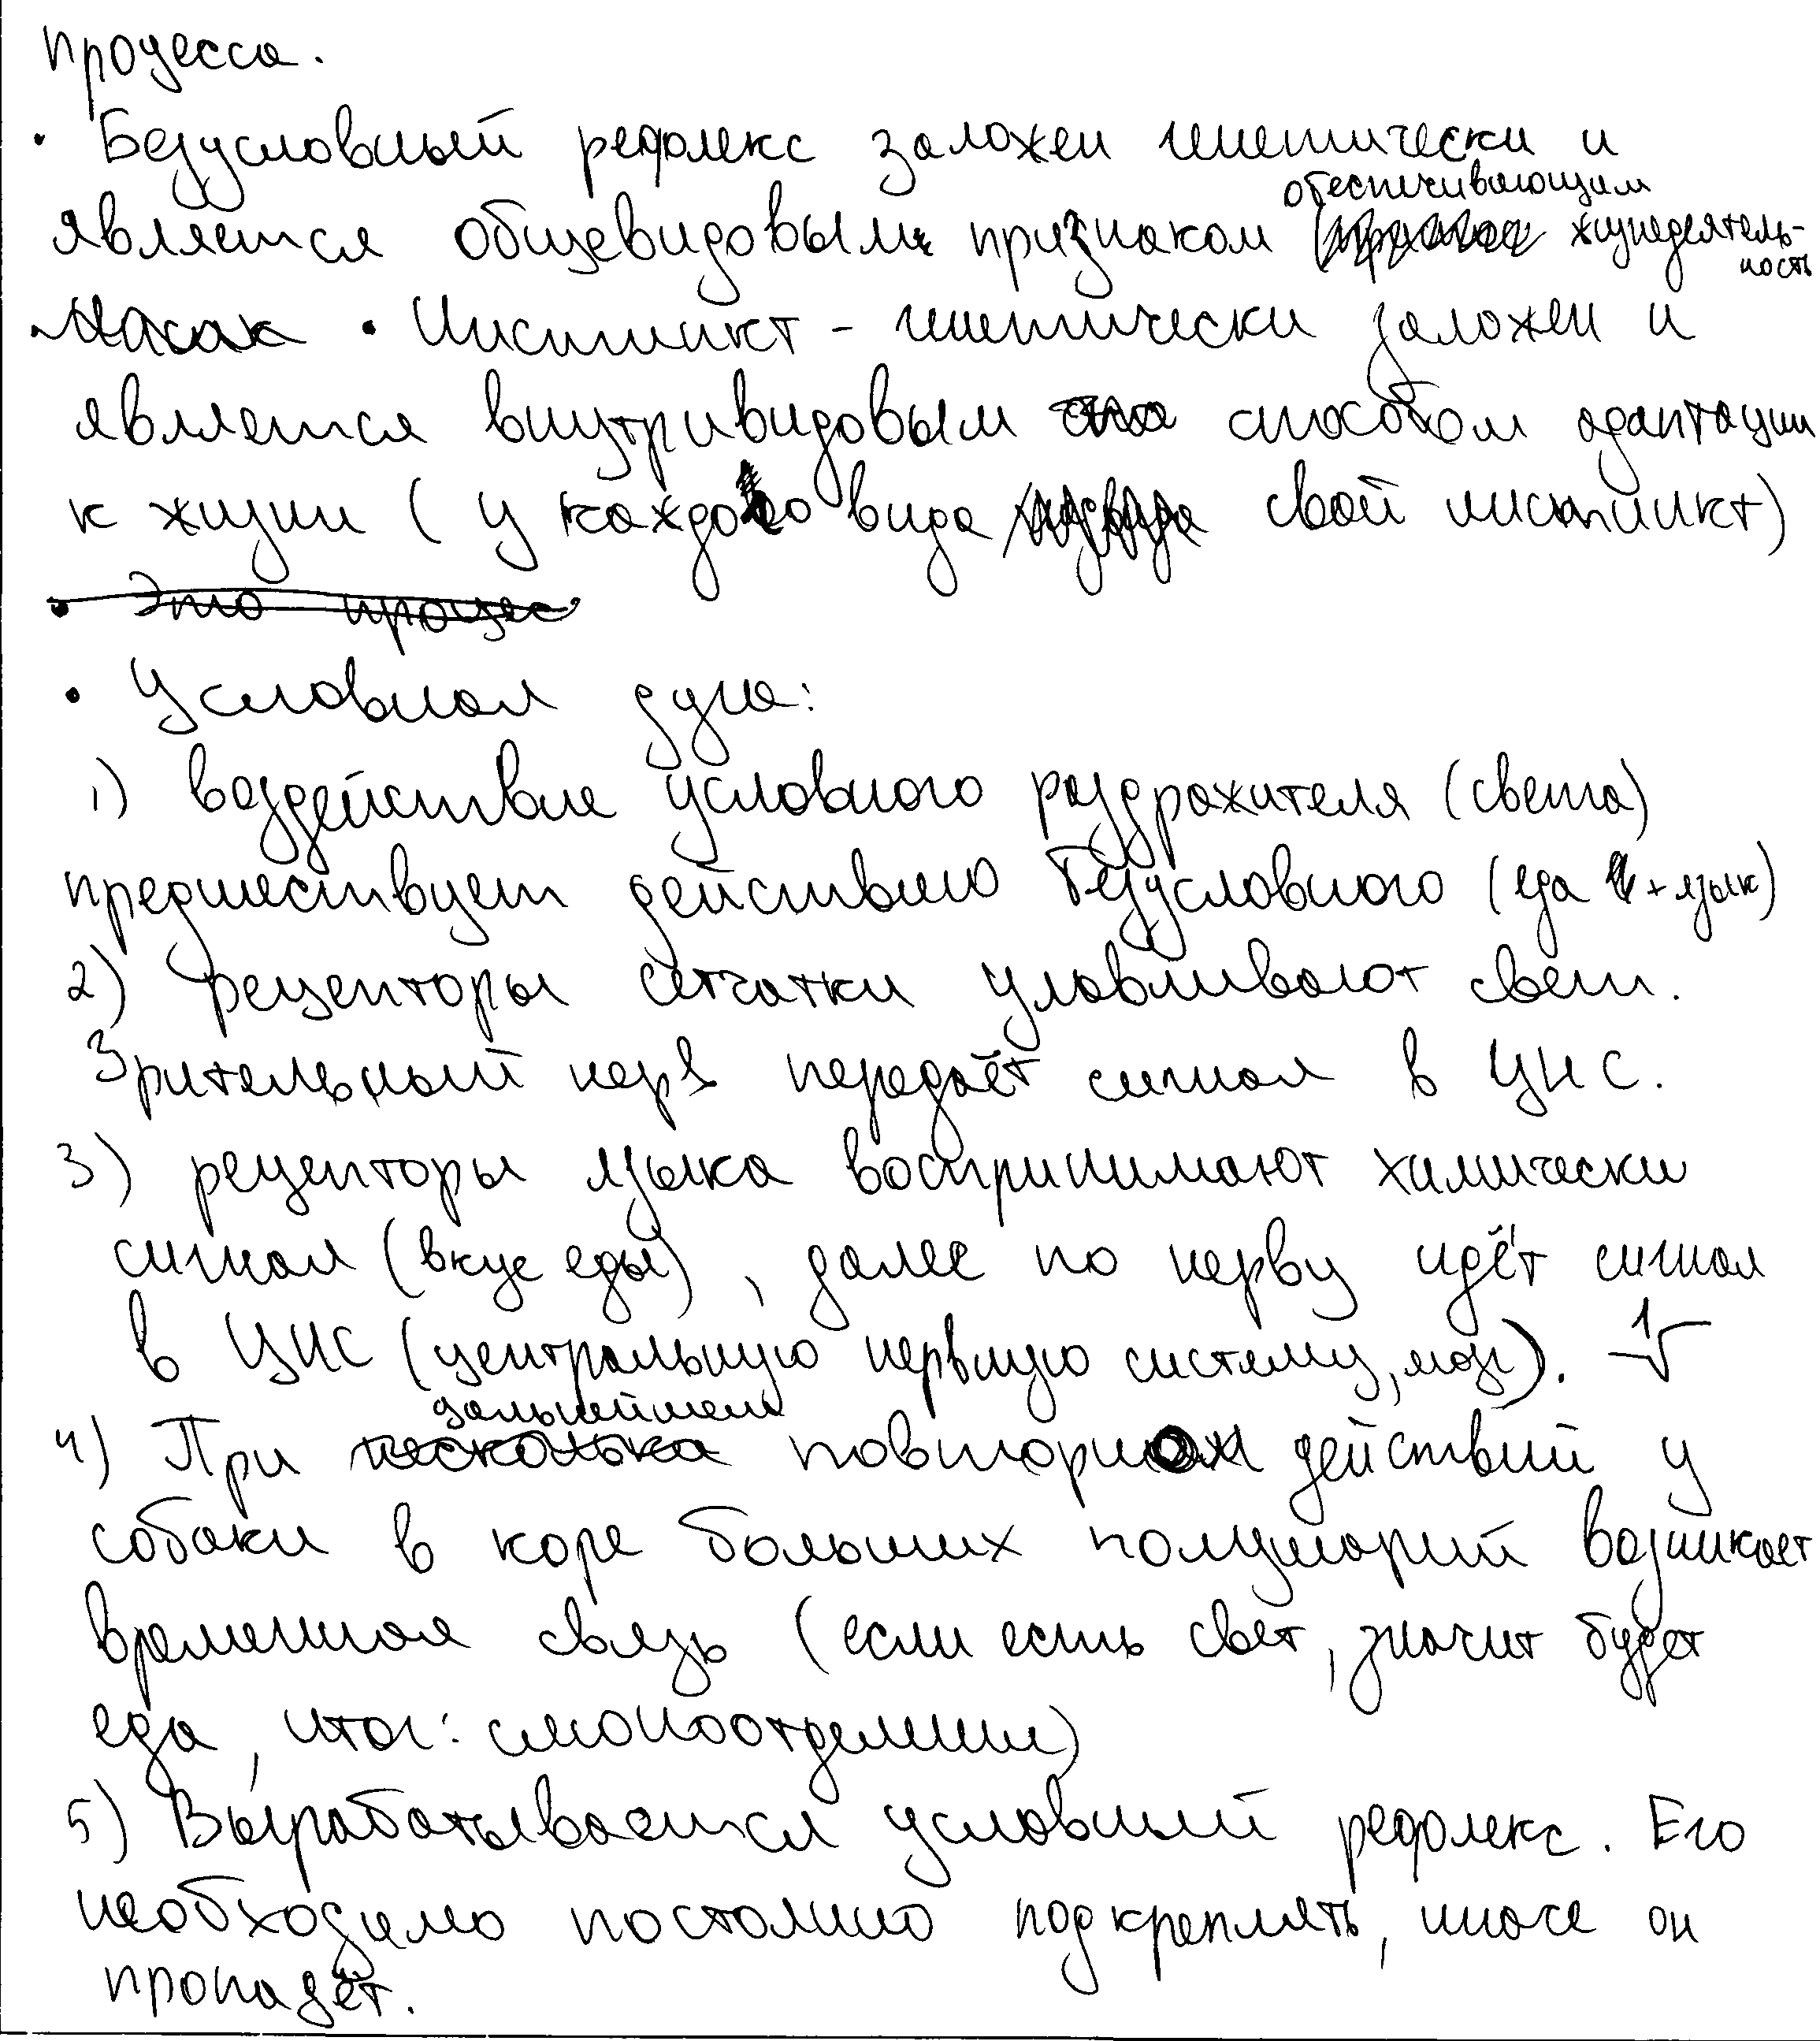 процесса.
• Безусловный рефлекс заложен генетически и
обеспечивающим
является общевидовым признаком жизнедеятель-
ность
• Инстинкт - генетически заложен и
является внутривидовым способом адаптации
к жизни ( у каждого вида свой инстинкт)
• Это процес
• Условная дуга:
1) воздействие условного раздражителя (света)
предшествует действию безусловного (еда + язык)
2) рецепторы сетчатки улавливают свет.
Зрительный нерв передаёт сигнал в ЦНС.
3) рецепторы языка воспринимают химически
сигнал (вкус еды), далее по нерву идёт сигнал
в ЦНС (центральную нервную систему, мозг). 1
дальнейшем
4) При несколька повторном действий у
собаки в коре больших полушарий возникает
временная связь (если есть свет, значит будет
еда, итог: слюноотделение)
5) Вырабатывается условный рефлекс. Его
необходимо постоянно подкреплять, иначе он
пропадёт.